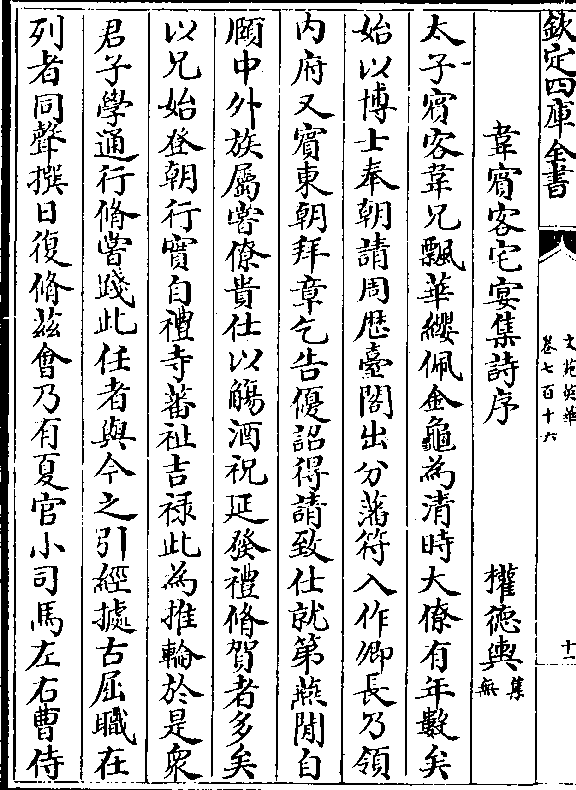 欽定四庫全書
文苑英華
卷七百十六
十一
韋賓客宅宴集詩序 權德輿 集無
太子賓客韋兄飄華纓佩金龜為清時大僚有年數矣
始以博士奉朝請周歷臺閣出分藩符入作卿長乃領
内府又賓東朝拜章乞告優詔得請致仕就第燕閒自
頤中外族屬嘗僚貴仕以觴酒祝延發禮脩賀者多矣
以兄始登朝行實自禮寺蕃祉吉祿此為推輪於是衆
君子學通行脩嘗踐此任者與今之引經據古屈職在
列者同聲撰日復脩兹會乃有夏官小司馬左右曹侍